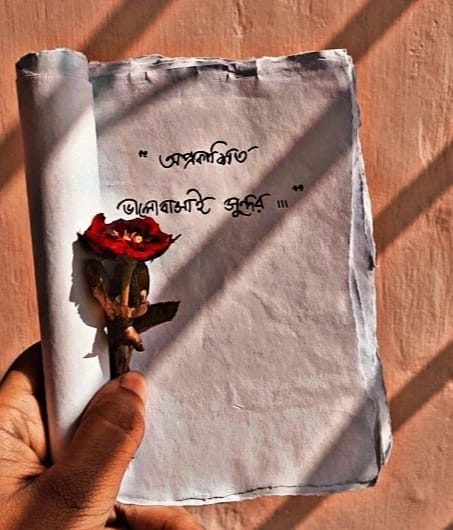 “ অপ্রকাশিত
ভালোবাসাই সুন্দর ...”